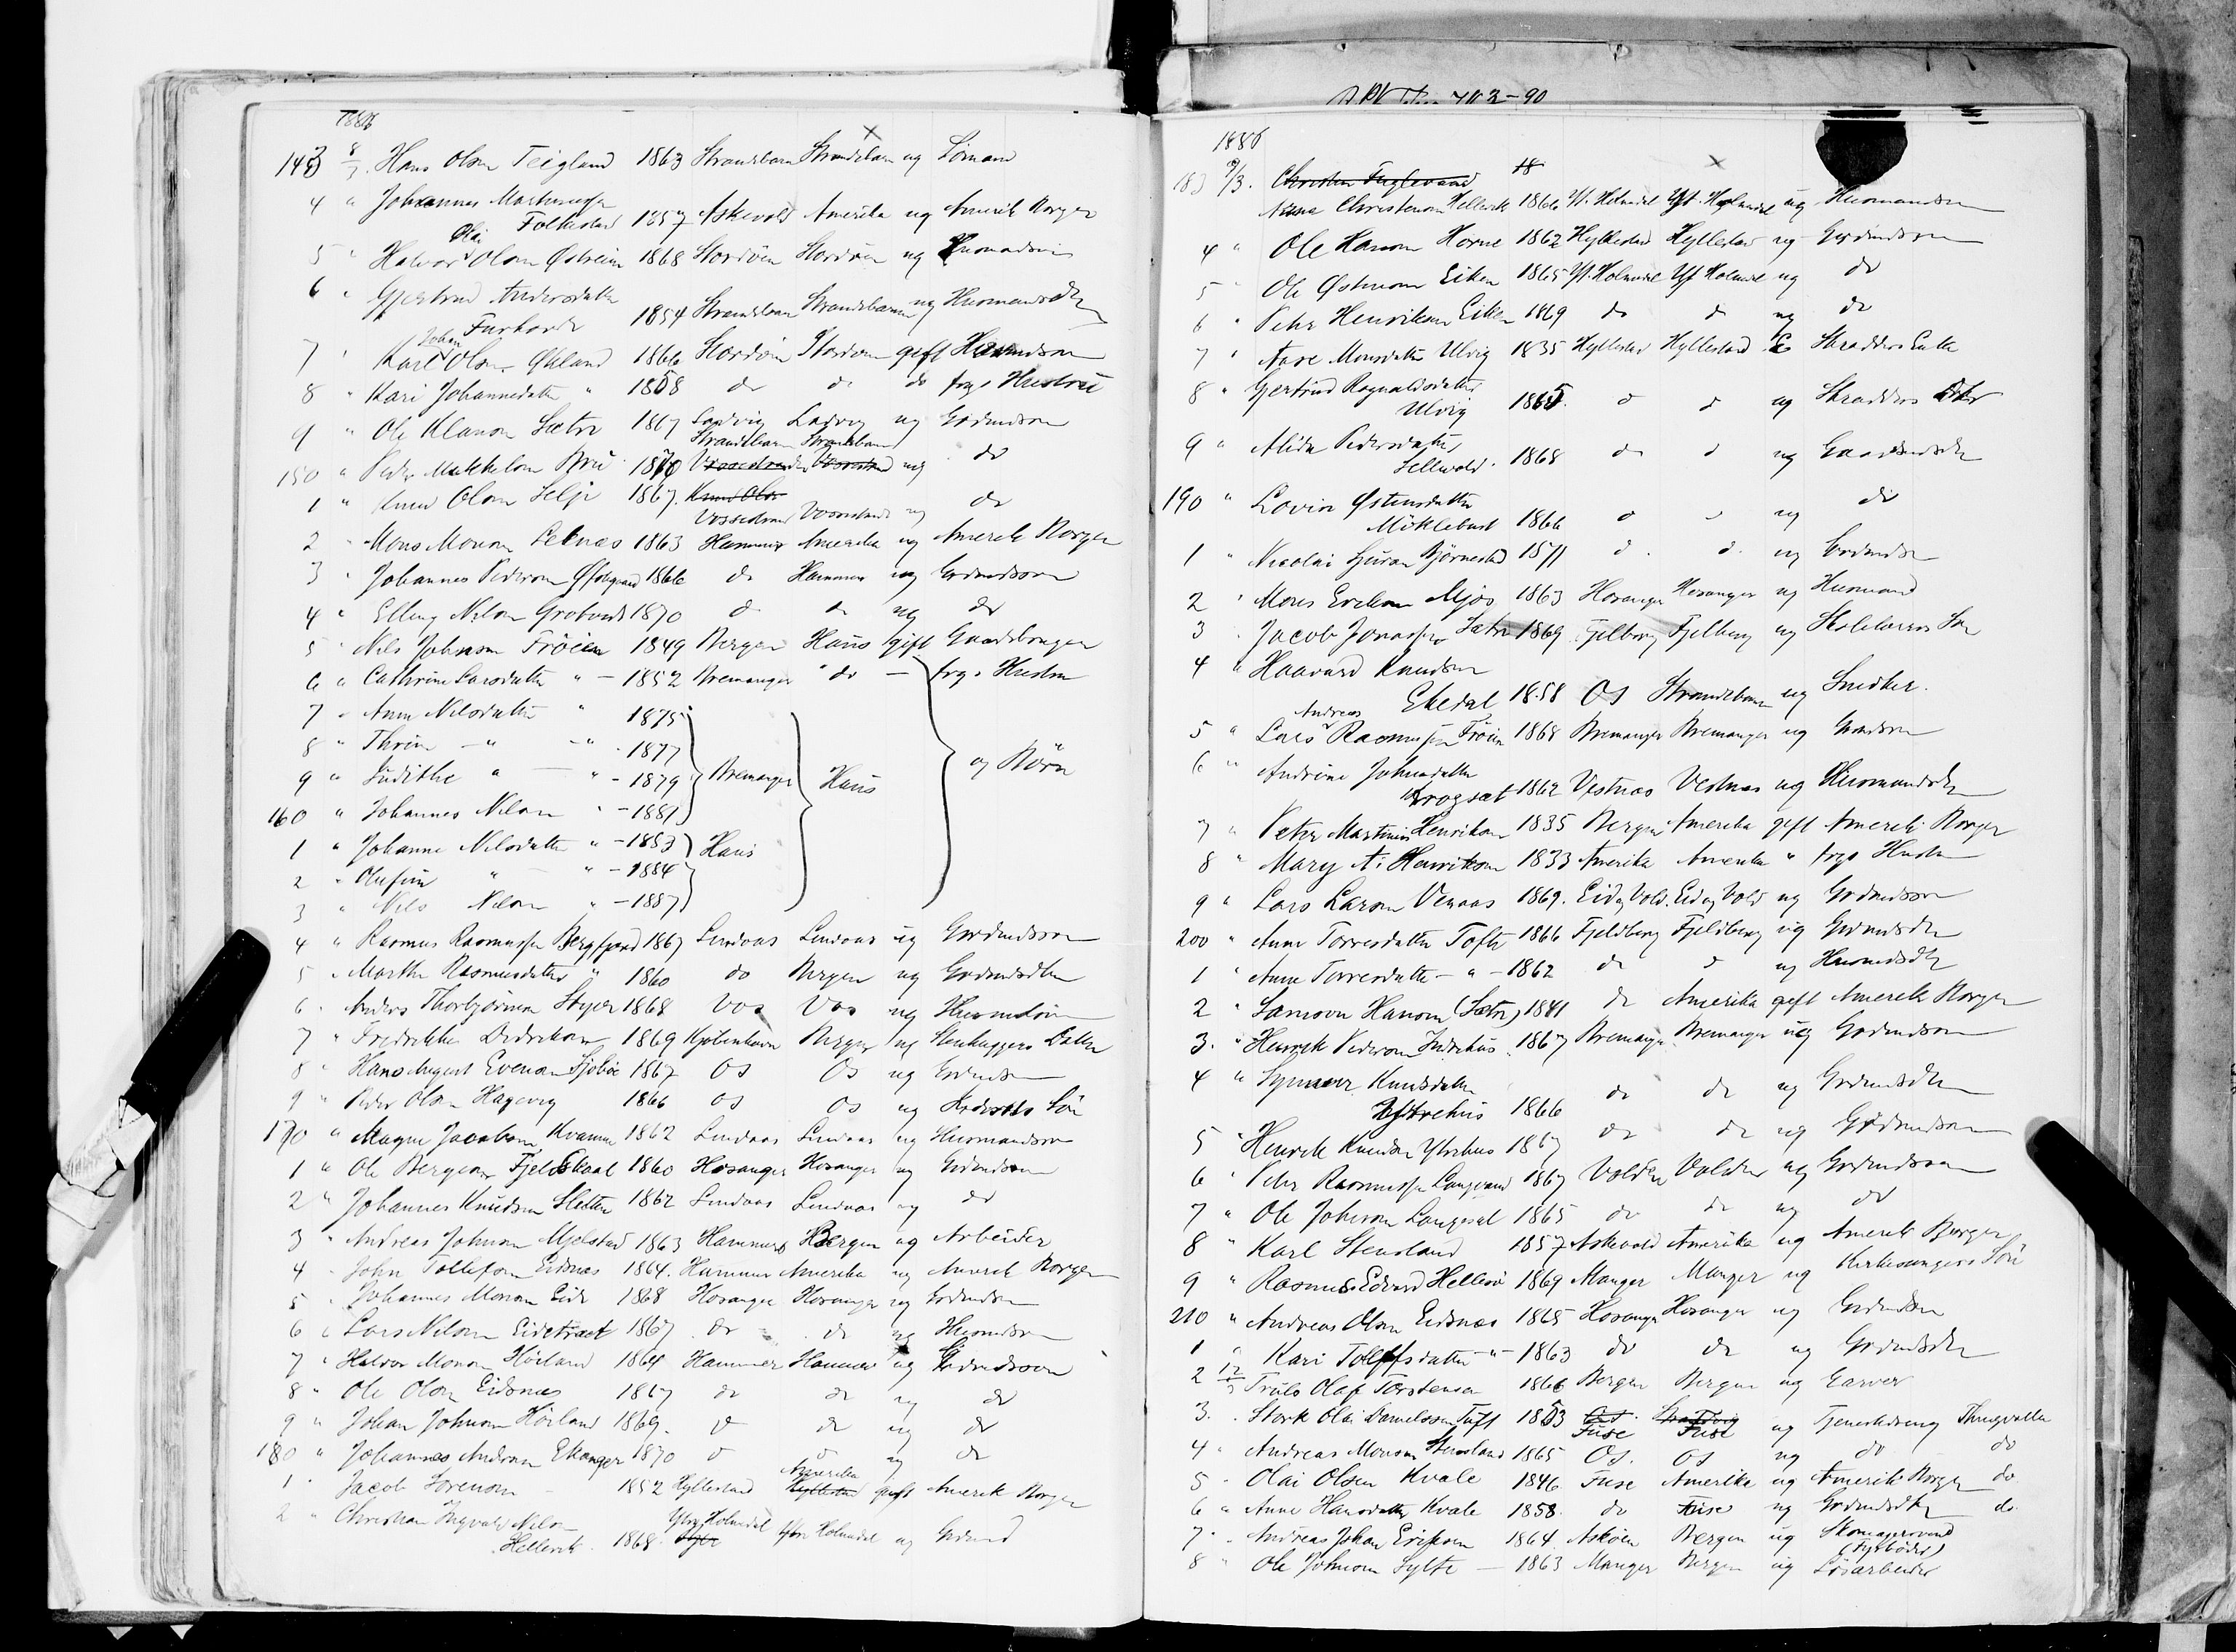 1886
143 8/7. Hans Olsen Teigland 1863 Strandebarm Strandebarm ug Sömand
4 " Johannes
Folkestad 1857 Askevold Amerika ug Amerik Borger
Olai
5 " Halvor Olsen Østreim 1868 Stordöen Stordöen ug
6 " Gjertrud Andersdatter
1854 Strandebarm Strandebarm ug Husmandsdtr
Johan
7 " Karl Olsen Økland 1866 Stordöen Stordöen gift
8 " Kari Johannesdatter " 1858 do do do frgs Hustru
9 " Ole Olsen Sætre 1867 Ladvig Ladvig ug Grdmdssøn
Strandebarm Strandebarm
150 " Peder Mikkelsen Bru 1870 ug do
1 " Knud Olsen Selje 1867. Knud Olsn
Vossestrand Vossestrand ug do
2 " Mons Monsen 1863 Hammer Amerika ug Amerik Borger
3 " Johannes Pedersen 1866 do Hammer ug Grdmdssøn
4 " Elling Nilsen 1870 do do ug do
5 " Nils Johnsen Fröien 1849 Bergen Haus gift Gaardbruger
6 " Cathrine Larsdatter " - 1852 Bremanger " do - frgs Hustru
7 " Anna Nilsdatter " 1875
8 " Thrine - " - " 1877
9 " Judithe " - " - 1879 Bremanger Haus og Börn
160 " Johannes Nilsen " - 1881
1 " Johanne Nilsdatter " - 1853 Haus
2 " Olufine " - " - 1884
3 " Nils Nilsen " - 1887
4 " Rasmus Rasmussen Bergfjord 1867 Lindaas Lindaas ug Grdmdssøn
5 " Marthe Rasmusdatter " 1860 do Bergen ug Grdmdsdtr
6 " Anders Thorbjörnsen 1868 Vos Vos ug
7 " Fredrikke Didriksen 1869 Kjöbenhavn Bergen ug Stenhuggers Datter
8 " Hans August Evensen Sjöböe 1867 Os Os ug Grdmdssøn
9 " Peder Olsen Hagevig 1866 Os Os ug Sön
170 " Magne Jacobsen Kvamme 1862 Lindaas Lindaas ug Husmandssøn
1 " Ole Bergesen Fjeldskaal 1860 Hosanger Hosanger ug Grdmdssøn
2 " Johannes Knudsen Sletten 1862 Lindaas Lindaas ug do
3 " Andreas Johnsen Mjelstad 1863 Hammer Bergen ug Arbeider
4 " John Tollefsen Eidsnæs 1864. Hammer Amerika ug Amerik Borger
5 " Johannes Monsen Eide 1868 Hosanger Hosanger ug Grdmdssøn
6 " Lars Nilsen Eidetræt 1867 do do ug Husmdssøn
7 " Halvor Monsen Hörland 1864 Hammer Hammer ug Grdmdssøn
8 " Ole Olsen Eidsnæs 1867 do do ug do
9 " Johan Johnsen Hörland 1869. do do ug do
180 " Johannes Andersen Ekanger 1870 do do ug do
Amerika
1 " Jacob Sörensen - 1852 Hyllestad Hyllestad gift Amerik Borger
2 " Christian Ingvald Nilsen Ytre Holmedal
Hellevik 1868. Ytre Holmedal ug Grdmd
1886
183 9/3. Christen Fuglevaand 18
Christensen Hellevik 1866 Yt. Holmedal Yt. Holmedal ug Husmandssøn
4 " Ole Hansen Horne 1862 Hyllestad Hyllestad ug Grdmdssøn
5 " Ole Østensen Eiken 1865 Yt. Holmedal Yt Holmedal ug do
6 " Peter Henriksen Eiken 1869 do do ug do
7 " Aase Monsdatter Ulvig 1835 Hyllestad Hyllestad Skradders Enke
8 " Gjertrud Ragnaldsdatter
Ulvig 1865 do do ug Skradders Dtr
9 " Alida Pedersdatter
Sellevold. 1868 do do ug Gaardmdsdtr
190 " Lovise Østensdatter
Möklebust 1866 do do ug do
1 " Nicolai Bjørnestad 1871 do do ug Grdmdssøn
2 " Mons Eriksen Mjøs 1863 Hosanger Hosanger ug Husmand
3 " Jacob Jonassen Sætre 1869 Fjelberg Fjelberg ug Skolelærers Sön
4 " Haavard Knudsen
Ekedal 1858 Os Strandebarm ug Snedker.
Andreas
5 " Lars Rasmussen Fröien 1868 Bremanger Bremanger ug Grdmdssøn
6 " Andrine Johnsdatter
1862 Vestnæs Vestnæs ug Husmandsdtr
7 " Peter Martinius Henriksen 1835 Bergen Amerika gift Amerik Borger
8 " Mary A. Henriksen 1833 Amerika Amerika " frgs Hustru
9 " Lars Larsen Venaas 1869. Eid og Vold. Eid og Vold ug Grdmdssøn
200 " Anne Torresdatter Tofte 1866 Fjeldberg Fjeldberg ug Grdmdsdtr
1 " Anne Torresdatter - " - 1862 do do ug Husmdsdtr
2 " Samson Hansen (Sætre) 1841 do Amerika gift Amerik Borger
3. " Henrik Pedersen Indrehus 1867 Bremanger Bremanger ug Grdmdssøn
4 " Synneve Knudsdatter
Ytrehus 1866 do do ug Grdmdsdtr
5 " Henrik Knudsen Ytrehus 1867 do do ug Grdmdssøn
6 " Peter Rasmussen Langvand 1867 Volden Volden ug Grdmdssøn
7 " Ole Johnsen Langesæt 1865 do do ug do
8 " Karl Stensland 1857 Askevold Amerika ug Amerik Borger
9 " Rasmus Edvard Hellesö 1869 Manger Manger ug Kirkesangers Sön
210 " Andreas Olsen Eidsnæs 1865 Hosanger Hosanger ug Grdmdssøn
1 " Kari Tollefsdatter " 1863 do do ug Grdmdsdtr
2 12/3 Truls Olaf Torstensen 1866 Bergen Bergen ug Garver
3. " Stork Olai Danielssen Tuft 1853 Fuse Fuse ug Tjenestedreng Thingvalla
4 " Andreas Monsen Stensland 1865 Os. Os ug do do
5 " Olai Olsen Kvale 1846 Fuse Amerika ug Amerik Borger do
6 " Anne Hansdatter Kvale 1858 do Fuse ug Grdmdsdtr do
7 " Andreas Johan Eriksen 1864. Askøen Bergen ug Skomagersvend
(Fyrböder)
8 " Ole Johnsen Sylte - 1863 Manger Bergen ug Lösarbeider